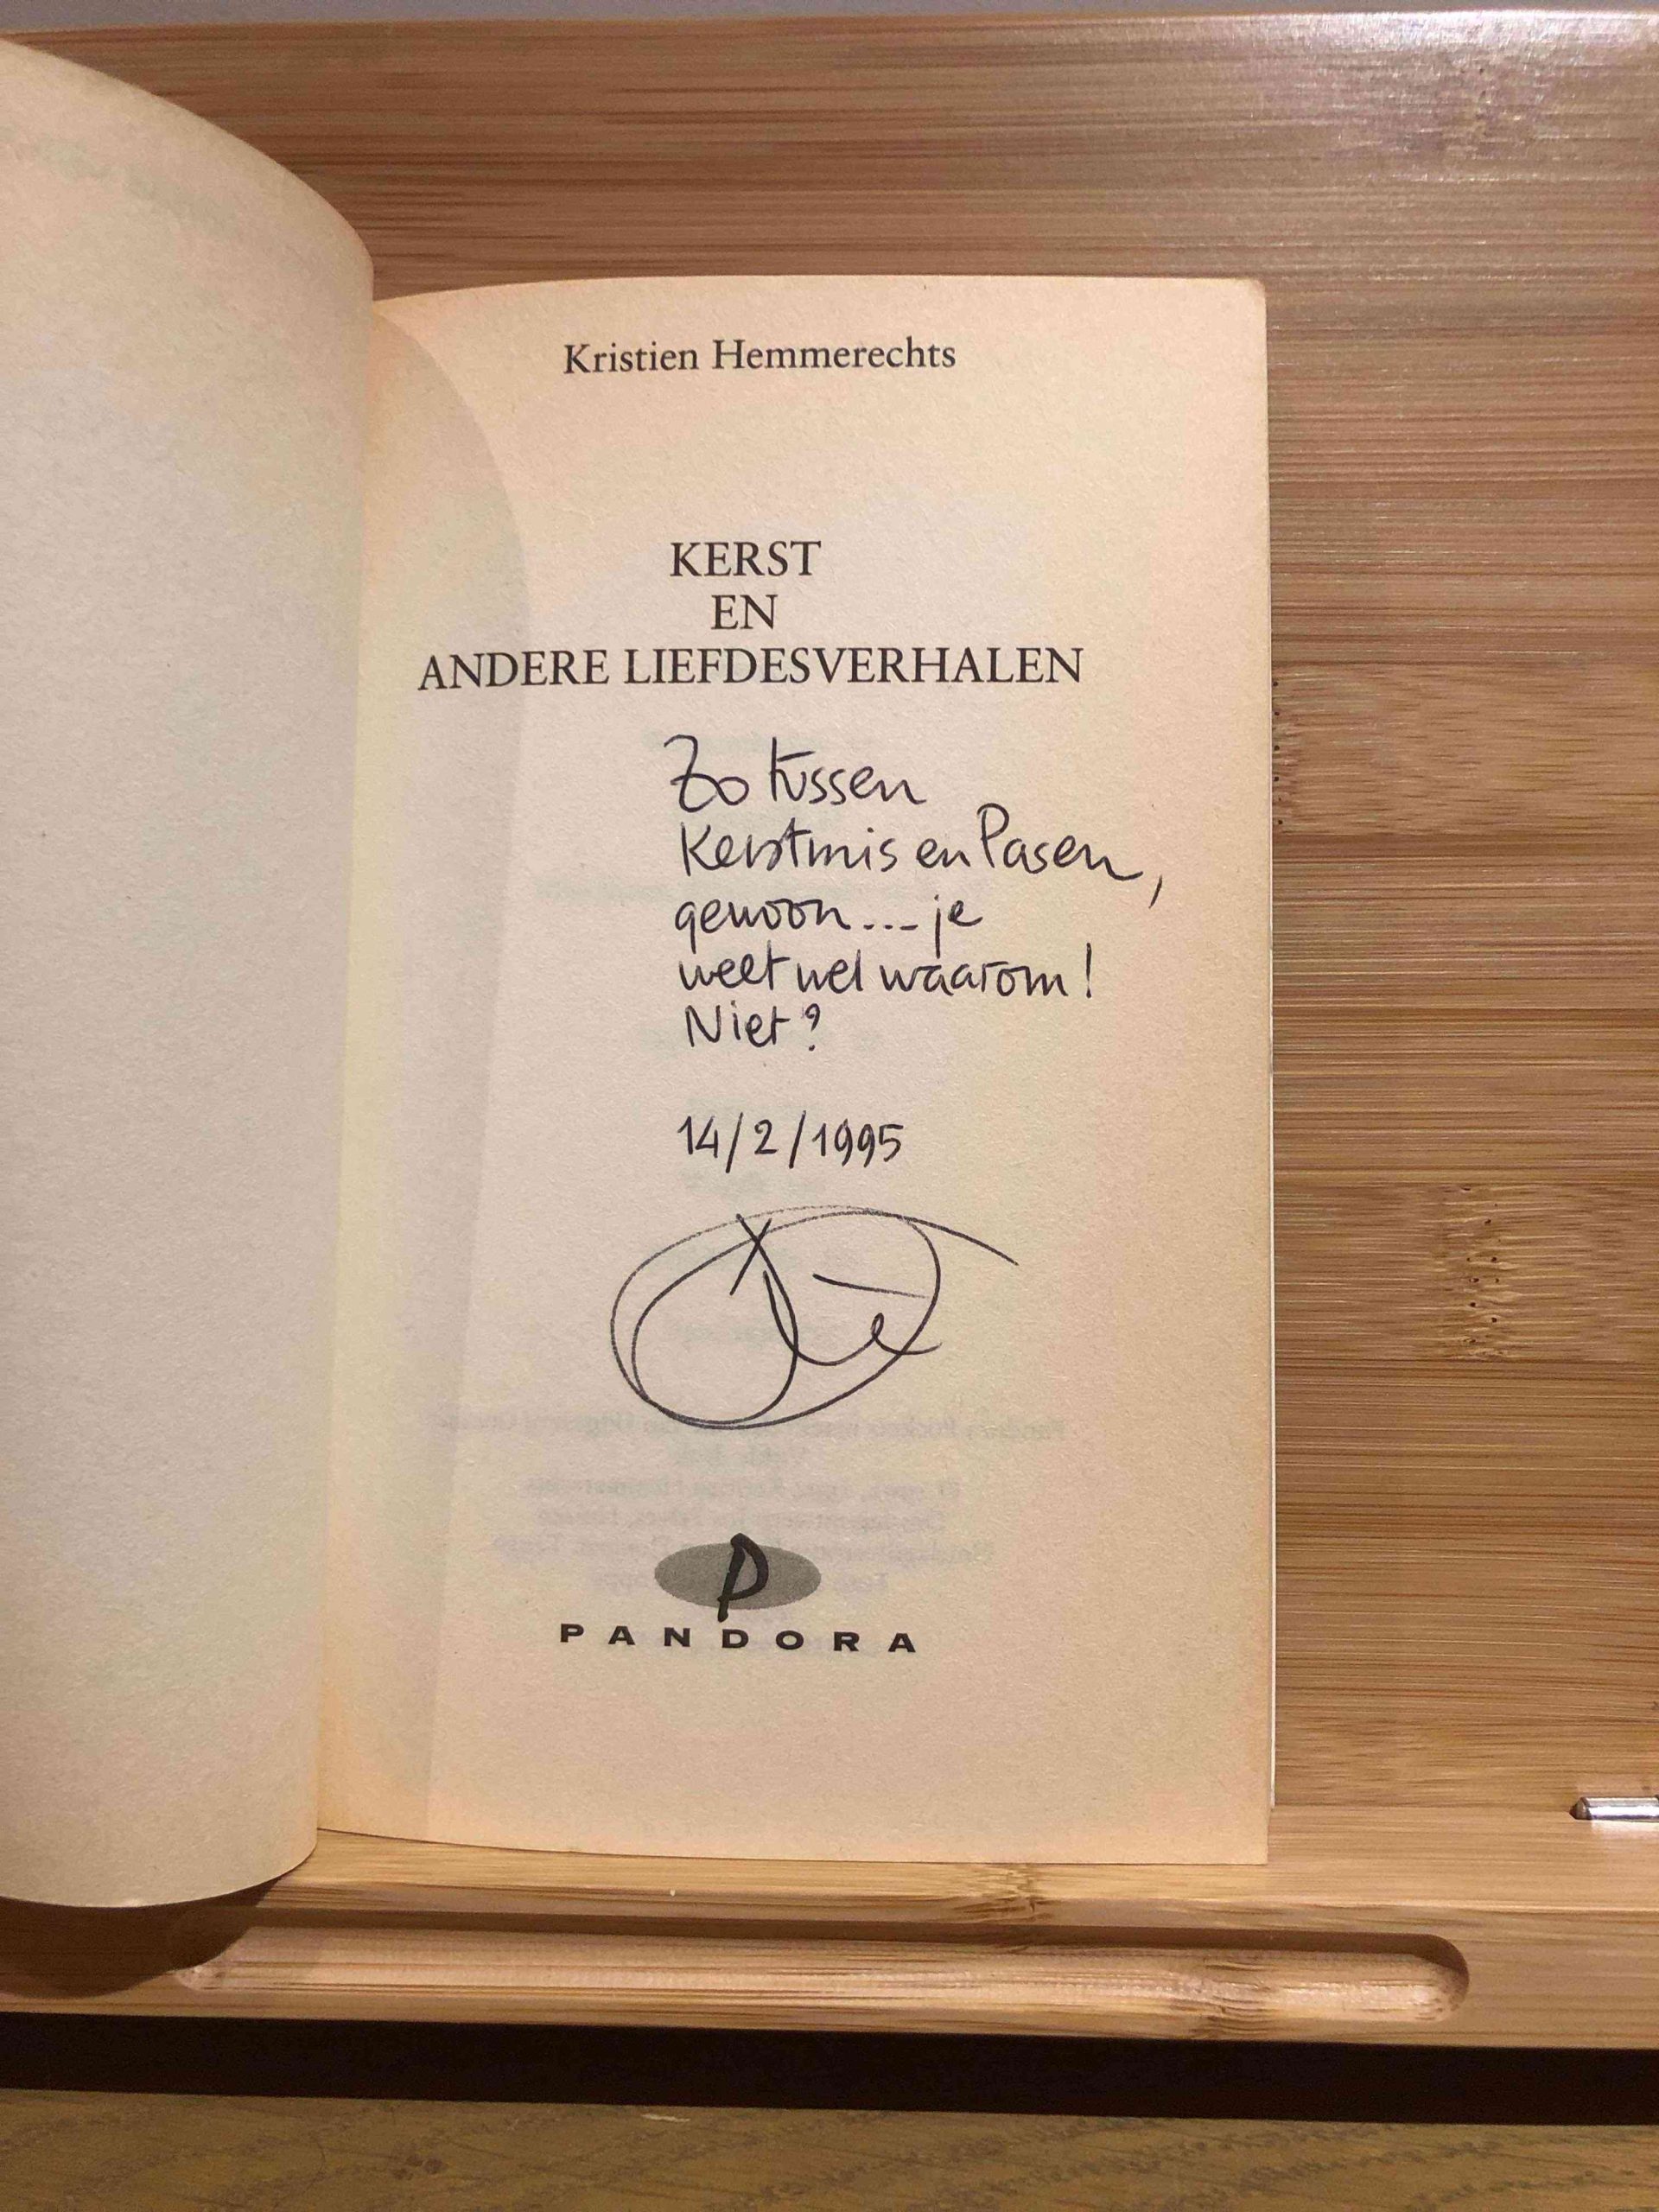 Kristien Hemmerechts
KERST
EN
ANDERE LIEFDESVERHALEN
Zo tussen
Kerstmis en Pasen,
gewoon... je
weet wel waarom!
Niet?
14/2/1995
P
PANDORA